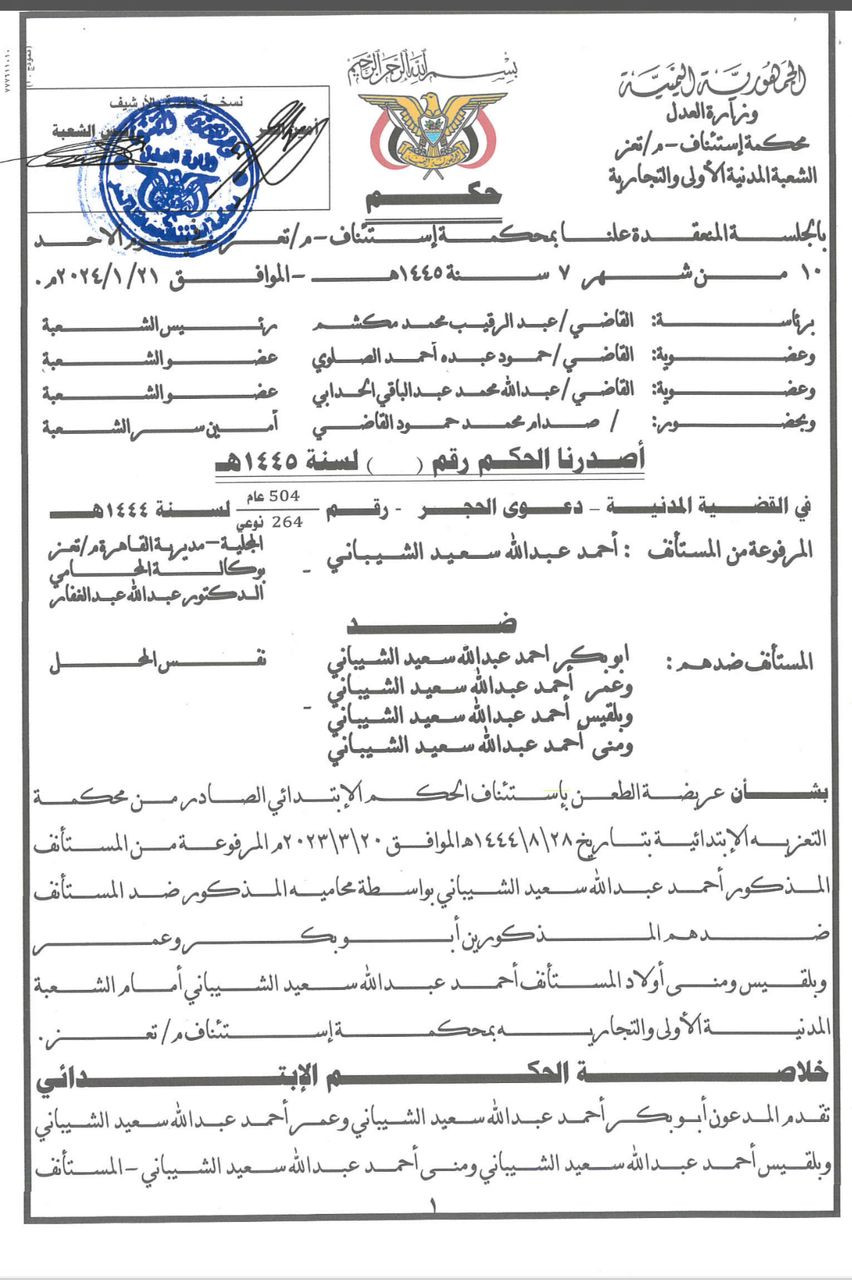 بسم الله الرحمن الرحيم
الجمهورية اليمنية
وزارة العدل
محكمة إستئناف - م/تعز
الشعبة المدنية الأولى والتجارية
نسخة خاصة بالأرشيف
أمين السر رئيس الشعبة
وزارة العدل
حكم
بالجلسة المنعقدة علنا بمحكمة إستئناف - م/تعز في يوم الاحد
١٠ من شهر ٧ سنة ١٤٤٥هـ - الموافق ٢٠٢٤/١/٢١م.
برئاسة: القاضي/ عبد الرقيب محمد مكشم رئيس الشعبة
وعضوية: القاضي/ حمود عبده أحمد الصلوي عضو الشعبة
وعضوية: القاضي/ عبدالله محمد عبدالباقي الحدابي عضو الشعبة
وبحضور: / صدام محمد حمود القاضي أمين سر الشعبة
أصدرنا الحكم رقم ( ) لسنة ١٤٤٥هـ
في القضية المدنية - دعوى الحجر - رقم 504 عام 264 نوعي لسنة ١٤٤٤هـ
المرفوعة من المستأنف : أحمد عبدالله سعيد الشيباني - المجلية - مديرية القاهرة م/تعز
بوكالة المحامي
الدكتور عبدالله عبدالغفار
ضد
المستأنف ضدهم : ابوبكر احمد عبدالله سعيد الشيباني نفس المحل
وعمر أحمد عبدالله سعيد الشيباني
وبلقيس أحمد عبدالله سعيد الشيباني -
ومنى أحمد عبدالله سعيد الشيباني
بشأن عريضة الطعن بإستئناف الحكم الإبتدائي الصادر من محكمة
التعزيه الإبتدائية بتاريخ ١٤٤٤/٨/٢٨هـ الموافق ٢٠٢٣/٣/٢٠م المرفوعة من المستأنف
المذكور أحمد عبدالله سعيد الشيباني بواسطة محاميه المذكور ضد المستأنف
ضدهم المذكورين أبوبكر وعمر
وبلقيس ومنى أولاد المستأنف أحمد عبدالله سعيد الشيباني أمام الشعبة
المدنية الأولى والتجاريه بمحكمة إستئناف م/تعز.
خلاصة الحكم الإبتدائي
تقدم المدعون أبوبكر أحمد عبدالله سعيد الشيباني وعمر أحمد عبدالله سعيد الشيباني
وبلقيس أحمد عبدالله سعيد الشيباني ومنى أحمد عبدالله سعيد الشيباني - المستأنف
١